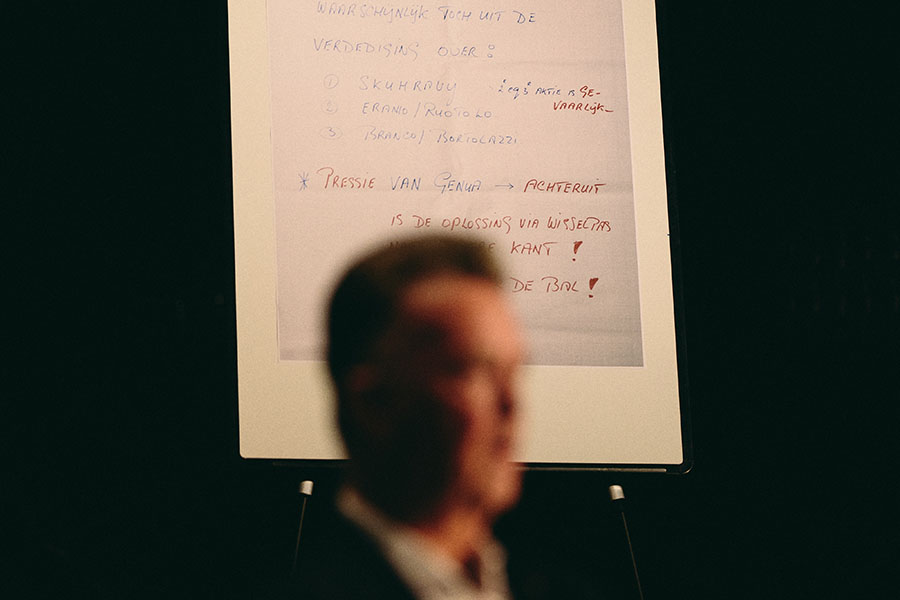 WAARSCHIJNLIJK TOCH UIT DE
VERDEDIGING OVER:
① SKUHRAVY → 2e eq 3e AKTIE IS GE-
VAARLIJK
② ERANIO/RUOTOLO
③ BRANCO/ BORTOLAZZI
* PRESSIE VAN GENUA → ACHTERUIT
IS DE OPLOSSING VIA WISSELPAS
KANT !
DE BAL !